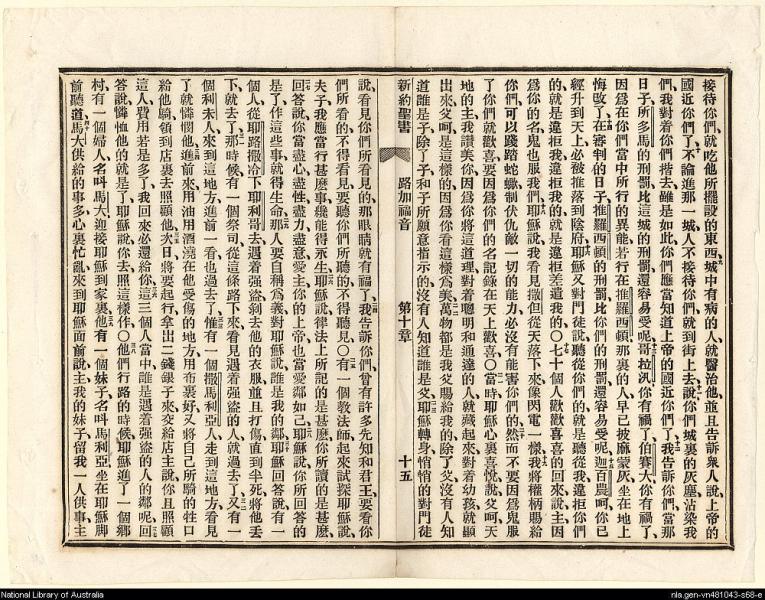 接待你們、就吃他所擺設的東西、城中有病的人、就醫治他、並且告訴衆人說、上帝的
國近你們了、不論進那一城、人不接待你們、就到街上去說、你們城裏的灰塵沾染我
們、我對着你們揩去、雖是如此、你們應當知道上帝的國近你們了、我告訴你們、當那
日子、所多馬的刑罰、比這城的刑罰、還容易受呢、哥拉汛、你有禍了、伯賽大、你有禍了、
因爲在你們當中所行的異能、若行在推羅西頓、那裏的人、早已披麻蒙灰、坐在地上
悔改了、在審判的日子、推羅西頓的刑罰、比你們的刑罰還容易受呢、迦百農呵、你已
經升到天上、必被推落到陰府、耶穌又對門徒說、聽從你們的就是聽從我、違拒你們
的就是違拒我、違拒我的就是違拒差遣我的〇七十個人歡歡喜喜的回來說、主、因
爲你的名、鬼也服我們、耶穌說、我看見撒但從天落下來、像閃電一樣、我將權柄賜給
你們、可以踐踏蛇蠍、制伏仇敵一切的能力、必沒有能害你們的、然而不要因爲鬼服
了你們就歡喜、要因你們的名記錄在天上歡喜〇當時耶穌心裏喜悅、說、父呵、天
地的主、我讚美你、因爲你將這道理、對着聰明和通達的人就藏起來、對着幼孩就顯
出來、父呵、是這樣的、因爲你看這樣爲美、萬物都是我父賜給我的、除了父沒有人知
道誰是子、除了子和子所願意指示的、沒有人知道誰是父、耶穌轉身悄悄的對門徒
新約聖書 路加福音 第十章 十五
說、看見你們所看見的、那眼睛就有福了、我告訴你們、曾有許多先知和君王、要看你
們所看的、不得看見、要聽你們所聽的、不得聽見〇有一個教法師起來、試探耶穌說、
夫子、我應當行甚麽事、纔能得永生、耶穌說、律法上所記的是甚麽、你所讀的是甚麽、
回答說、你當盡心盡性盡力盡意、愛主你的上帝、也當愛鄰如己、耶穌說、你所回答的
是了、你作這些事、就得生命、那人要自稱爲義、對耶穌說、誰是我的鄰、耶穌回答說、有一
個人、從耶路撒冷下耶利哥去、遇着強盜、剝去他的衣服、並且打傷、直到半死、將他丟
下、就去了、那時候有一個祭司、從這條路下來、看見遇着強盜的人、就過去了、又有一
個利未人、來到這地方、進前一看、也過去了、惟有一個撒馬利亞人、走到這地方看見
了、就憐憫他、進前來用油用酒、澆在他受傷的地方、用布裹好、又將自己所騎的牲口
給他騎、領到店裏去照顧他、次日將要起行、拿出二錢銀子來、交給店主說、你且照顧
這人、費用若是多了、我回來必還給你、這三個人當中、誰是遇着強盜的人的鄰呢、回
答說、憐恤他的就是了、耶穌說、你去照這樣作〇他們行路的時候、耶穌進了一個鄉
村、有一個婦人、名叫馬大、迎接耶穌到家裏、他有一個妹子、名叫馬利亞、坐在耶穌脚
前聽道、馬大供給的事多、心裏忙亂、來到耶穌面前說、主、我的妹子留我一人供事、主
National Library of Australia
nla.gen-vn481043-s68-e